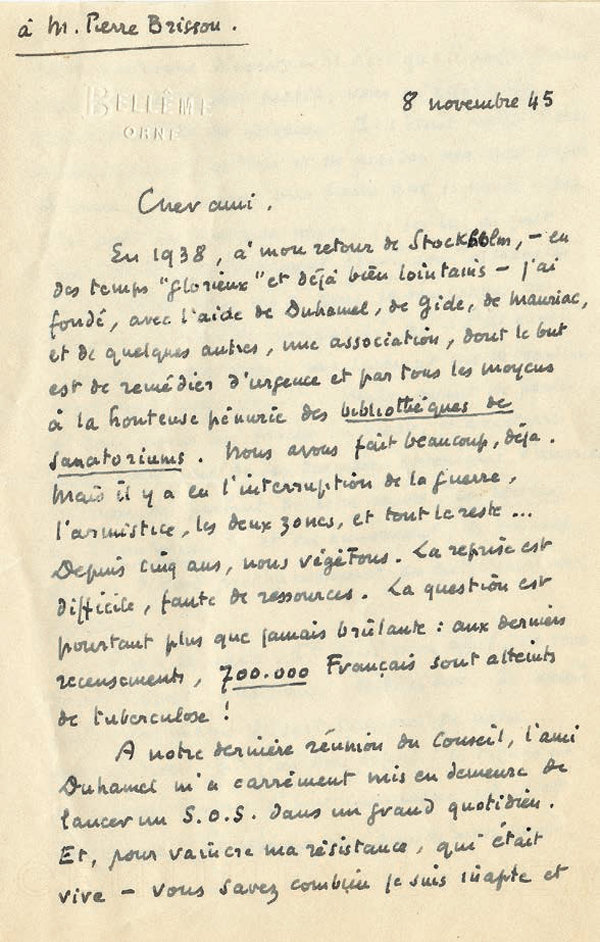 à M. Pierre Brisson.
BELLÊME
ORNE
8 novembre 45
Cher ami.
En 1938, à mon retour de Stockholm, – en
des temps "glorieux" et déjà bien lointains – j'ai
fondé, avec l'aide de Duhamel, de Gide, de Mauriac,
et de quelques autres, une association, dont le but
est de remédier d'urgence et par tous les moyens
à la honteuse pénurie des bibliothèques de
sanatoriums. Nous avons fait beaucoup, déjà.
Mais il y a eu l'interruption de la guerre,
l'armistice, les deux zones, et tout le reste ...
Depuis cinq ans, nous végétons. La reprise est
difficile, faute de ressources. La question est
pourtant plus que jamais brûlante : aux derniers
recensements, 700.000 Français sont atteints
de tuberculose !
A notre dernière réunion du Conseil, l'ami
Duhamel m'a carrément mis en demeure de
lancer un S.O.S. dans un grand quotidien.
Et, pour vaincre ma résistance, qui était
vive – vous savez combien je suis inapte et